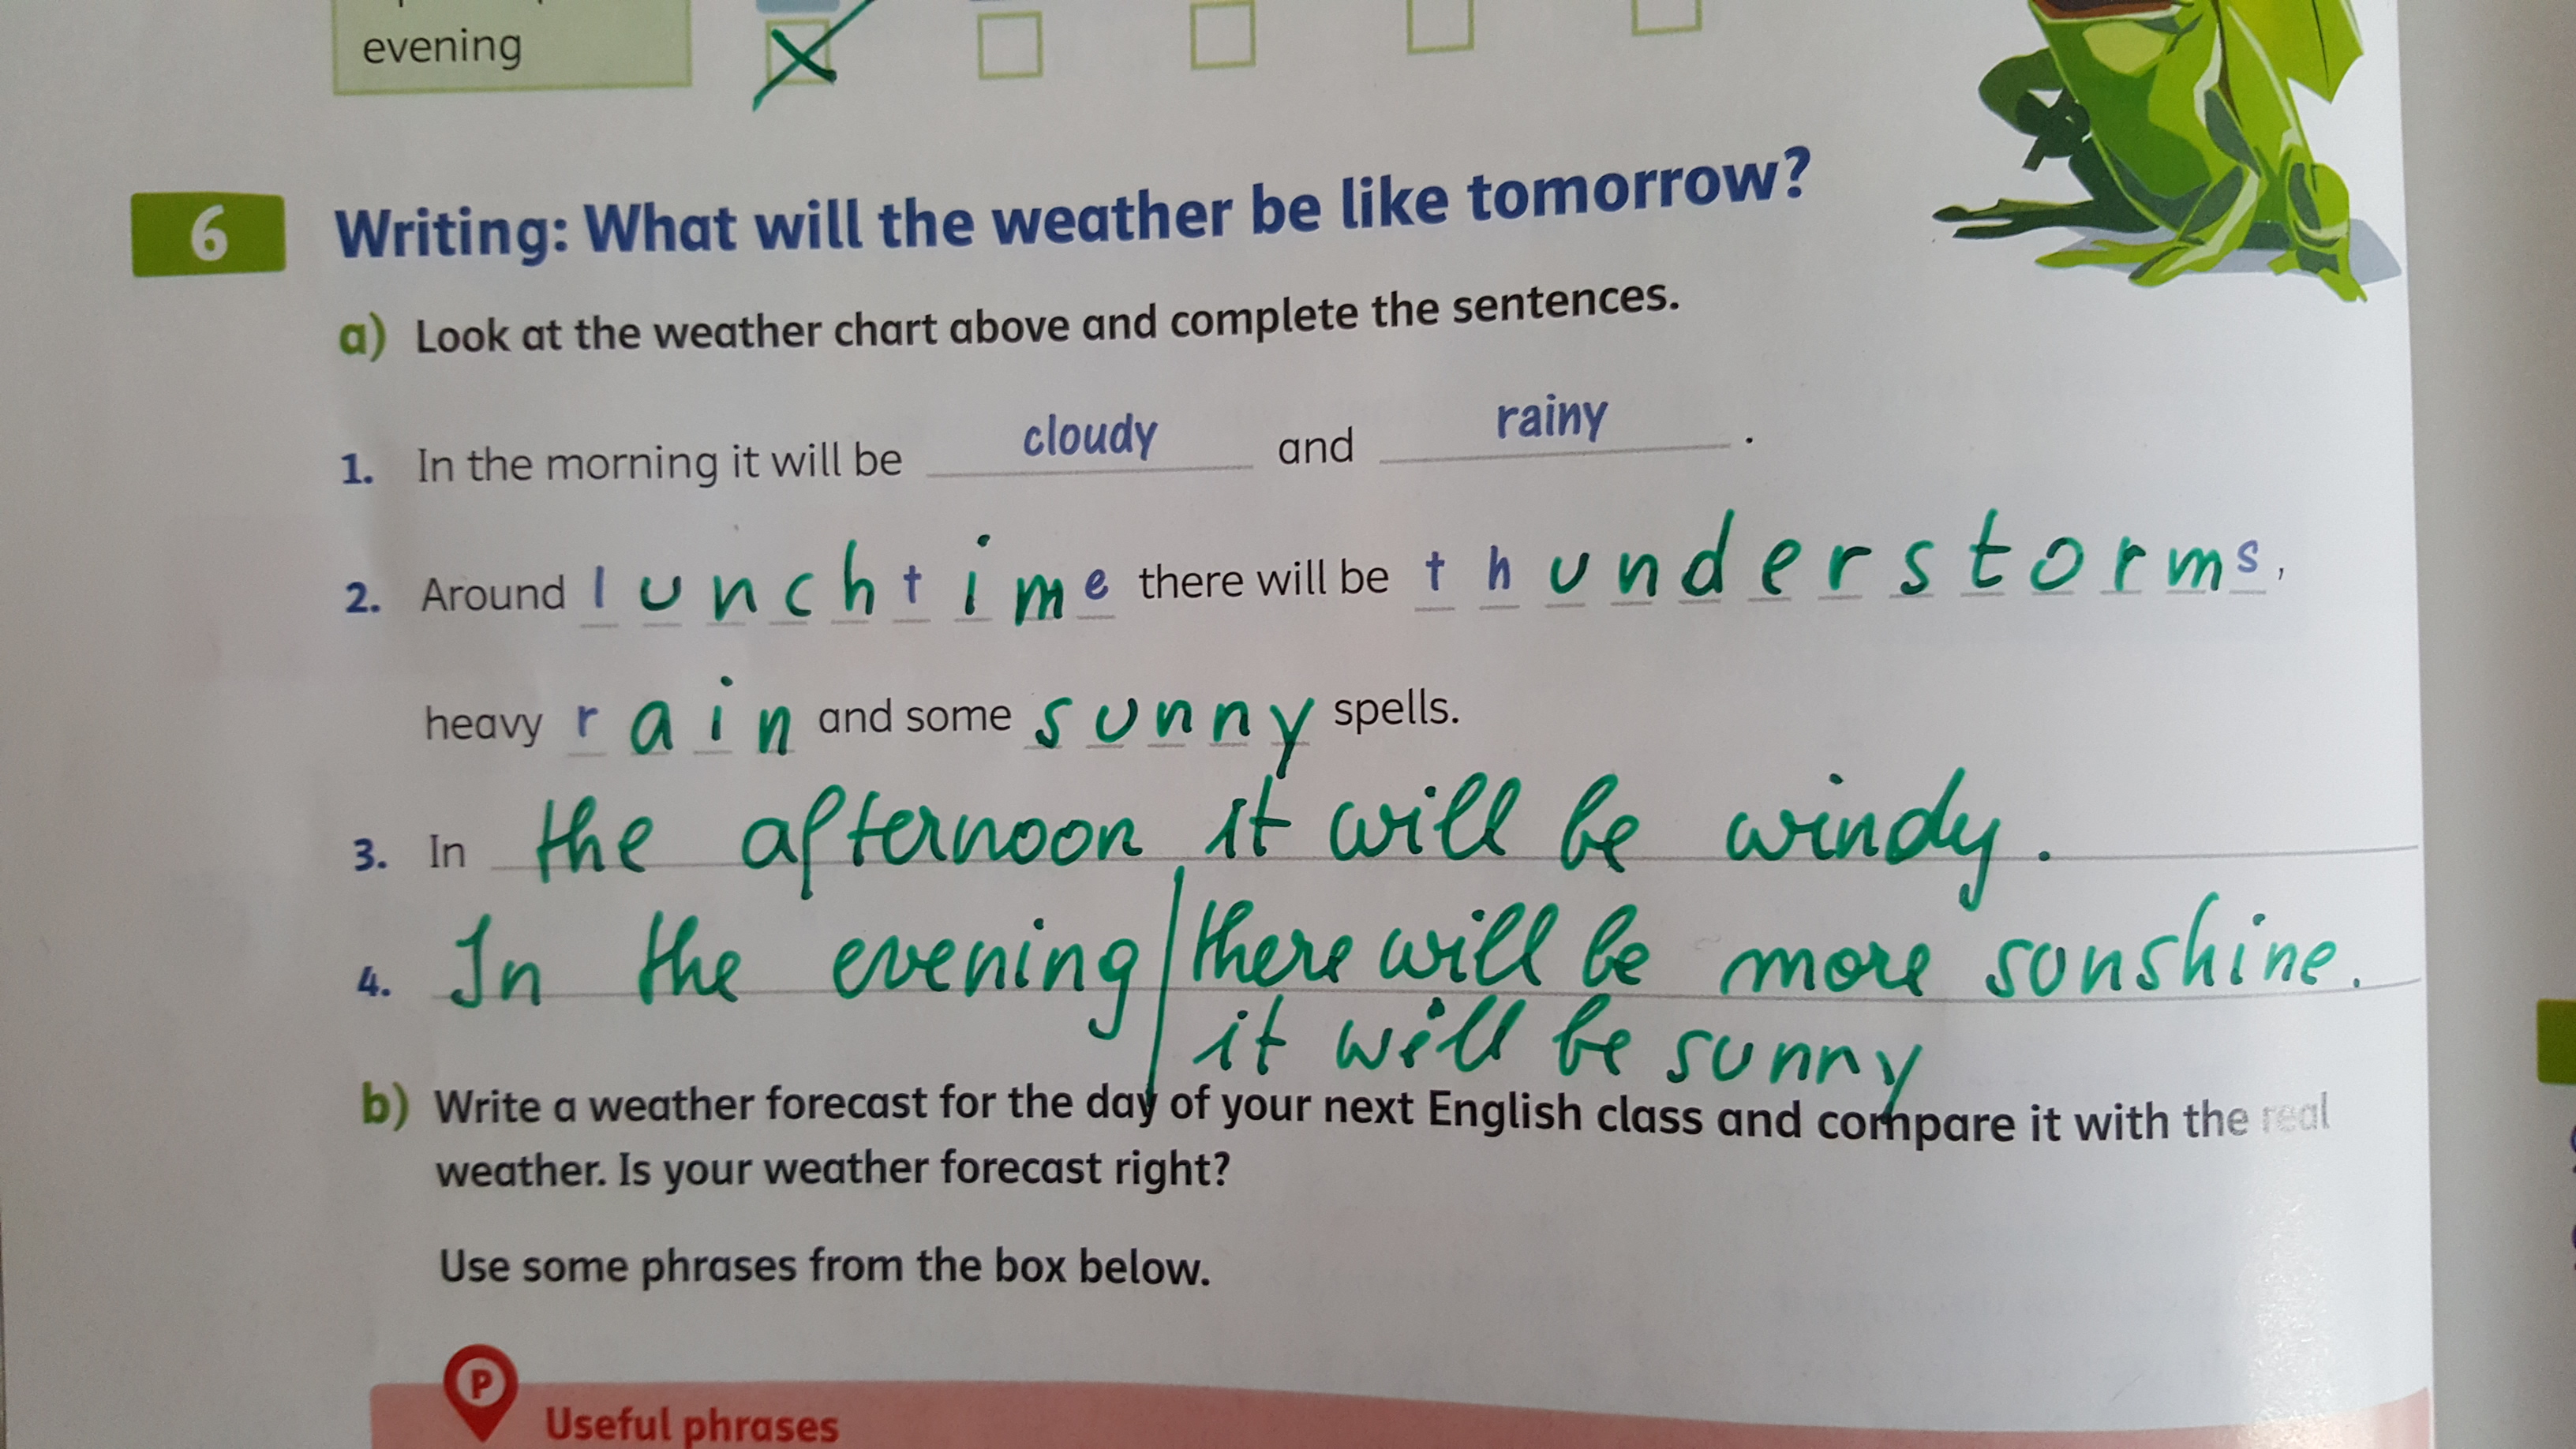 evening
6 Writing: What will the weather be like tomorrow?
a) Look at the weather chart above and complete the sentences.
1. In the morning it will be cloudy and rainy .
2. Around lunchtime there will be thunderstorms,
heavy rain and some sunny spells.
3. In the afternoon it will be windy.
4. In the evening / there will be more sunshine.
it will be sunny
b) Write a weather forecast for the day of your next English class and compare it with the real
weather. Is your weather forecast right?
Use some phrases from the box below.
P
Useful phrases